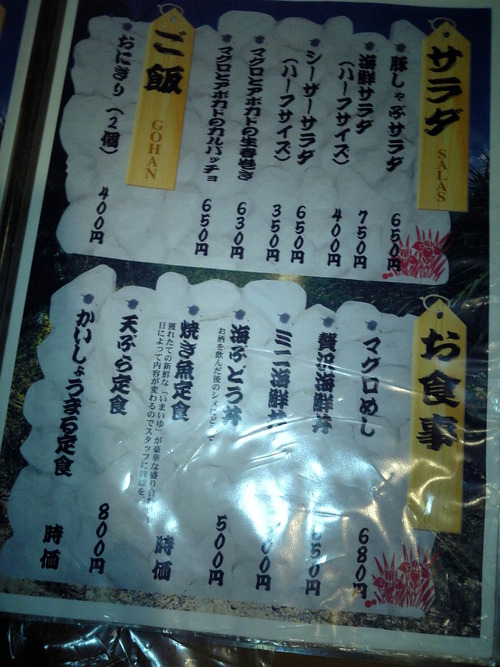 サラダ
SALAS
豚しゃぶサラダ 650円
海鮮サラダ 750円
(ハーフサイズ) 400円
シーザーサラダ 650円
(ハーフサイズ) 350円
マグロとアボカドの生春巻き 630円
マグロとアボカドのカルパッチョ 650円
ご飯
GOHAN
おにぎり(2個) 400円
お食事
マグロめし 680円
贅沢海鮮丼 50円
ミニ海鮮丼 00円
海ぶどう丼 500円
お酒を飲んだ後のシメに
焼き魚定食 時価
獲れたての新鮮な「いまいゆ」が豪華な盛り
日によって内容が変わるのでスタッフに
天ぷら定食 800円
かいしょううま石定食 時価